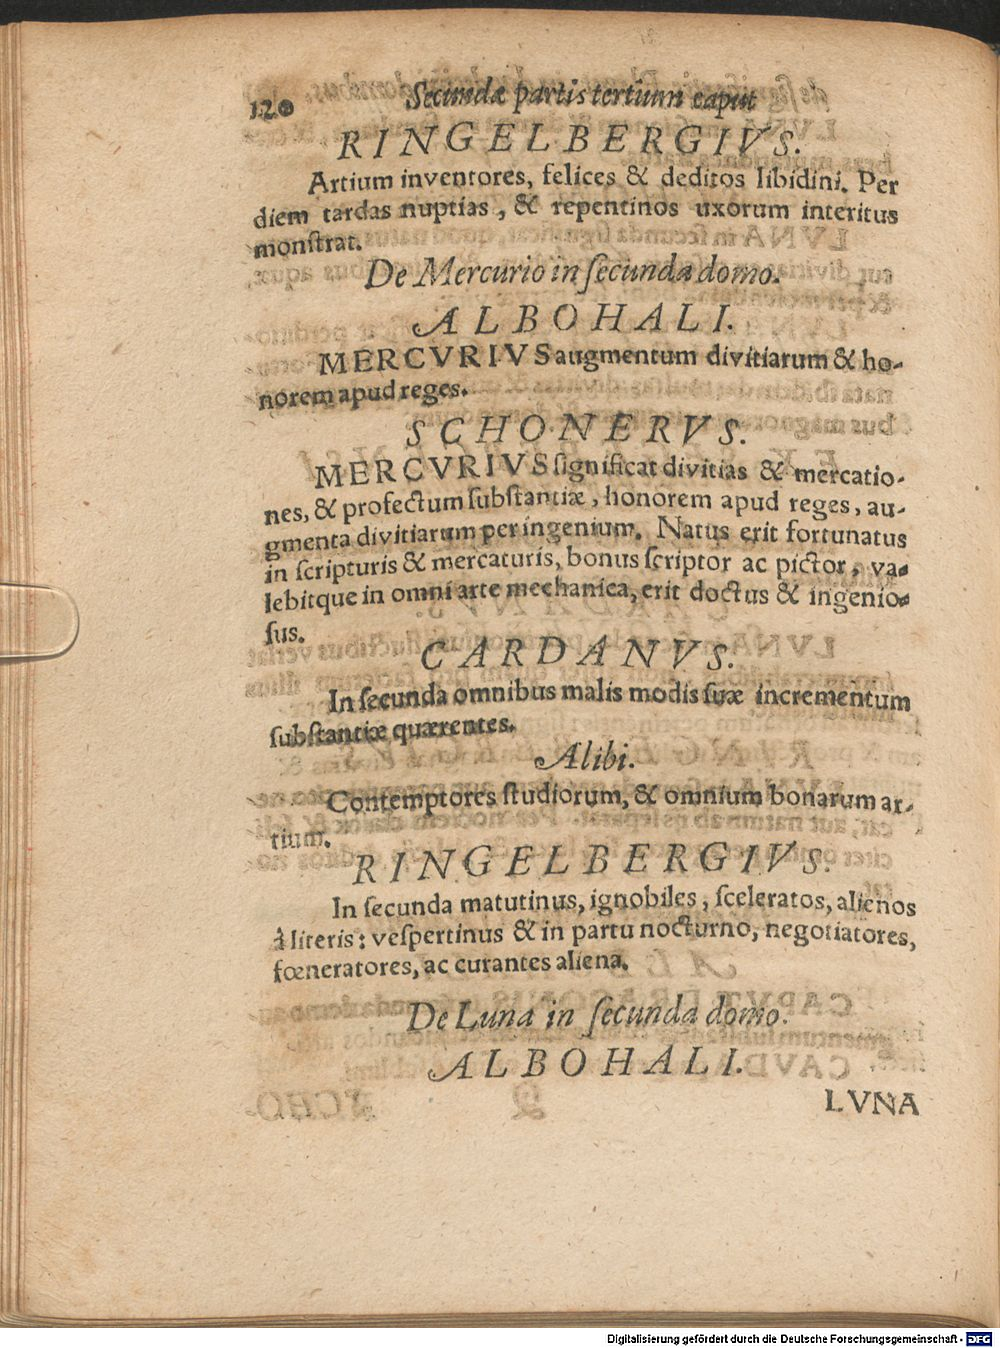 120 Secundæ partis tertium caput
RINGELBERGIVS.
Artium inventores, felices & deditos libidini. Per
diem tardas nuptias, & repentinos uxorum interitus
monſtrat.
De Mercurio in ſecunda domo.
ALBOHALI.
MERCVRIVS augmentum divitiarum & ho-
norem apud reges.
SCHONERVS.
MERCVRIVS ſignificat divitias & mercatio-
nes, & profectum ſubſtantiæ, honorem apud reges, au-
gmenta divitiarum per ingenium. Natus erit fortunatus
in ſcripturis & mercaturis, bonus ſcriptor ac pictor, va-
lebitque in omni arte mechanica, erit doctus & ingenio-
ſus.
CARDANVS.
In ſecunda omnibus malis modis ſuæ incrementum
ſubſtantiæ quærentes.
Alibi.
Contemptores ſtudiorum, & omnium bonarum ar-
tium.
RINGELBERGIVS.
In ſecunda matutinus, ignobiles, ſceleratos, alienos
à literis: veſpertinus & in partu nocturno, negotiatores,
fœneratores, ac curantes aliena.
De Luna in ſecunda domo.
ALBOHALI.
LVNA
Digitalisierung gefördert durch die Deutsche Forschungsgemeinschaft - DFG